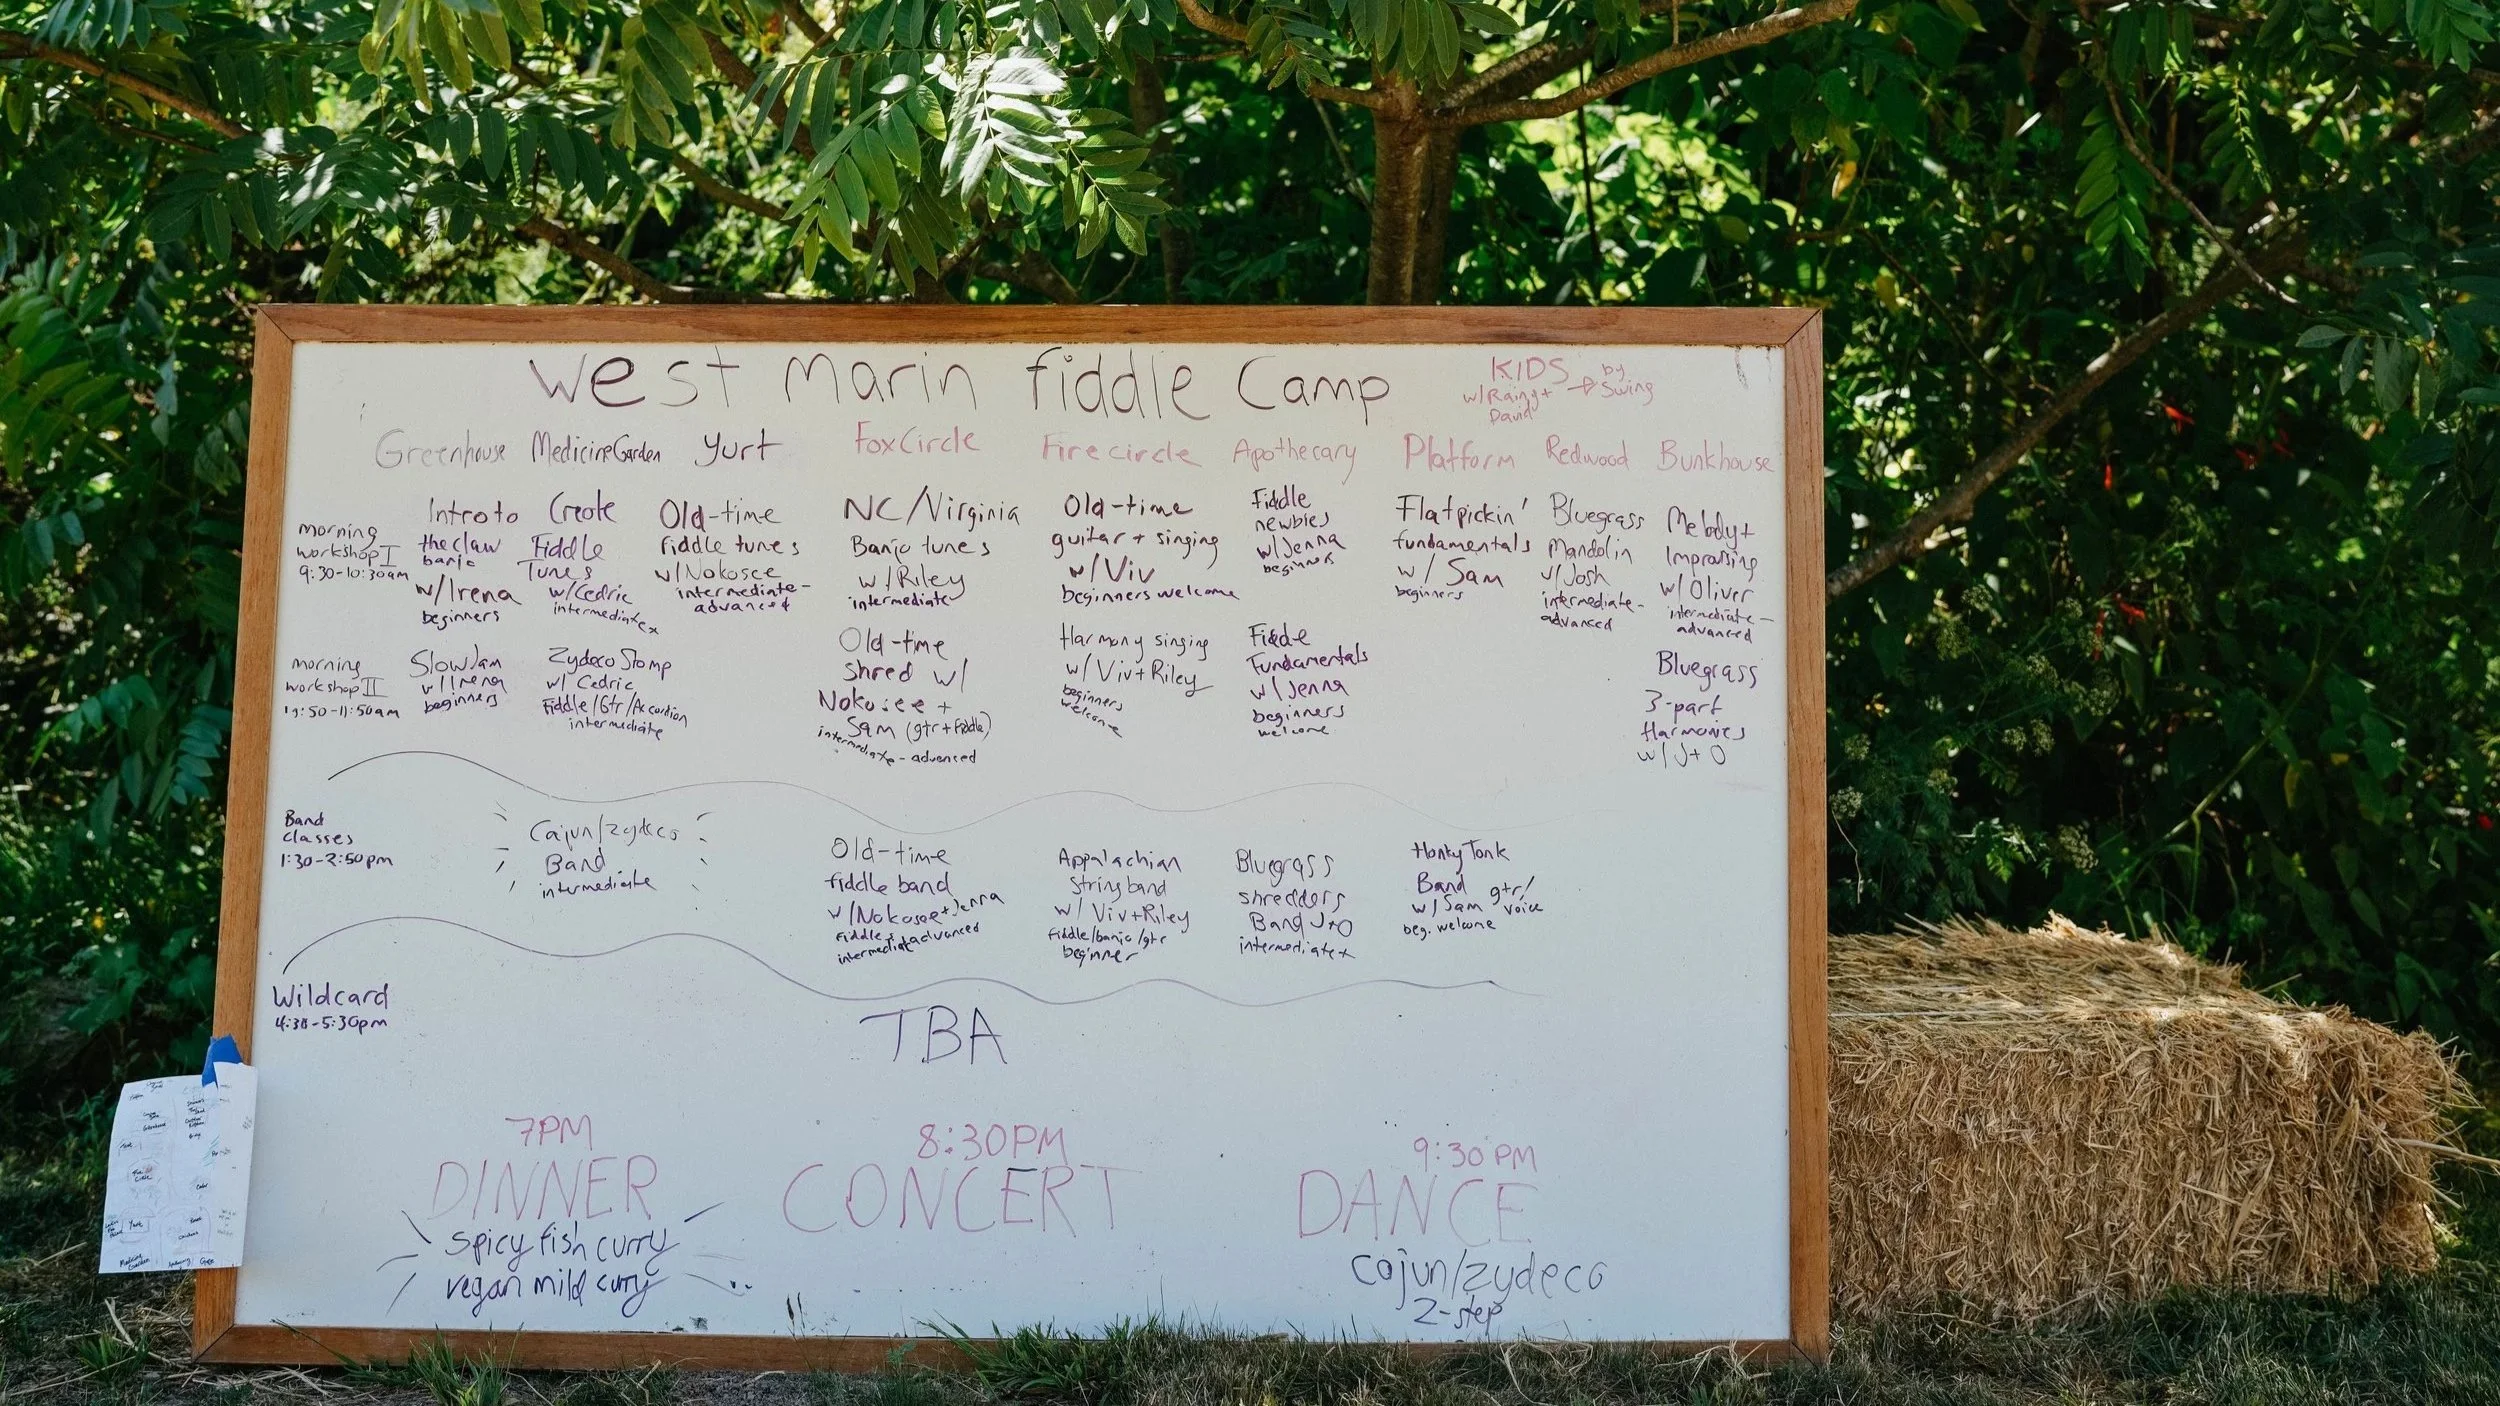 West Marin Fiddle Camp
KIDS
w/Rainy+
David
by
Swing
Greenhouse Medicine Garden Yurt Fox Circle Fire circle Apothecary Platform Redwood Bunkhouse
morning
workshop I
9:30-10:30am
Intro to
the claw
banjo
w/Irena
beginners
Creole
Fiddle
Tunes
w/Cedric
intermediate x
Old-time
fiddle tunes
w/Nokosee
intermediate-
advanced
NC/Virginia
Banjo tunes
w/Riley
intermediate
Old-time
guitar + singing
w/Viv
beginners welcome
Fiddle
newbies
w/Jenna
beginners
Flatpickin'
fundamentals
w/ Sam
beginners
Bluegrass
Mandolin
w/Josh
intermediate-
advanced
Melody+
Improvising
w/Oliver
intermediate-
advanced
morning
workshop II
-11:50am
Slow Jam
w/Irena
beginners
Zydeco Stomp
w/ Cedric
Fiddle/Gtr/Accordion
intermediate
Old-time
shred w/
Nokosee +
Sam (gtr+fiddle)
intermediate-advanced
Harmony singing
w/Viv+Riley
beginners
welcome
Fiddle
Fundamentals
w/Jenna
beginners
welcome
Bluegrass
3-part
Harmonies
w/ J+O
Band
classes
1:30-2:50pm
Cajun/zydeco
Band
intermediate
Old-time
fiddle band
w/Nokosee+Jenna
Fiddles advanced
intermediate
Appalachian
String band
w/ Viv+Riley
fiddle/banjo/gtr
beginner
Bluegrass
shredders
Band J+O
intermediate+
Honky Tonk
Band gtr/
w/Sam voice
beg. welcome
Wildcard
4:30-5:30pm
TBA
7PM
DINNER
spicy fish curry
vegan mild curry
8:30PM
CONCERT
9:30PM
DANCE
cajun/zydeco
2-step